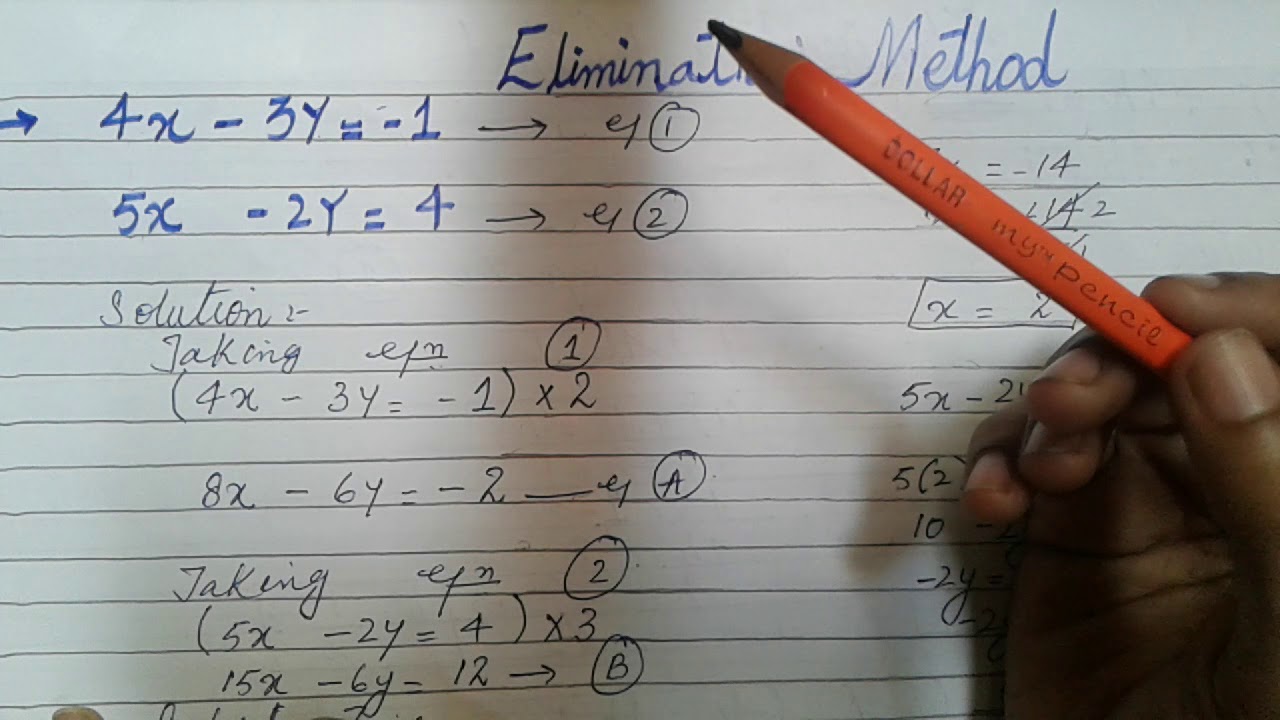 Elimination Method
→ 4x - 3y = -1 → eq ①
5x - 2y = 4 → eq ②
Solution :-
Taking eqn ①
(4x - 3y = -1) × 2
8x - 6y = -2 — eq Ⓐ
Taking eqn ②
(5x - 2y = 4) × 3
15x - 6y = 12 → Ⓑ
= -14
14 2
x = 2
5x - 2y
5(2)
10 - 2
-2y =
-2y
DOLLAR my pencil